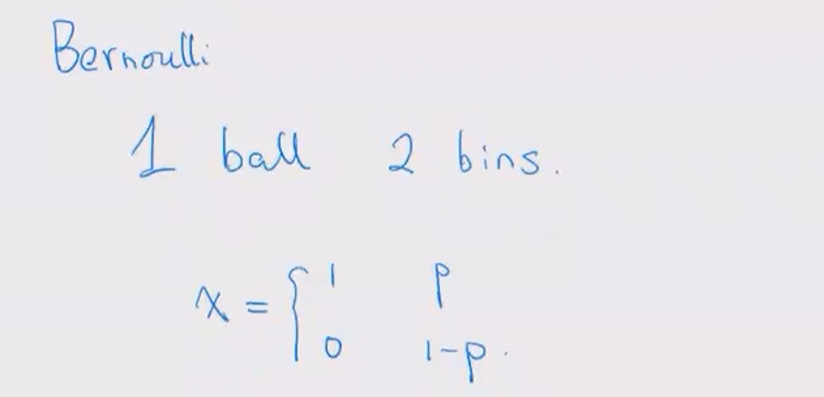 Bernoulli
1 ball 2 bins.
x = { 1 p
0 1-p.